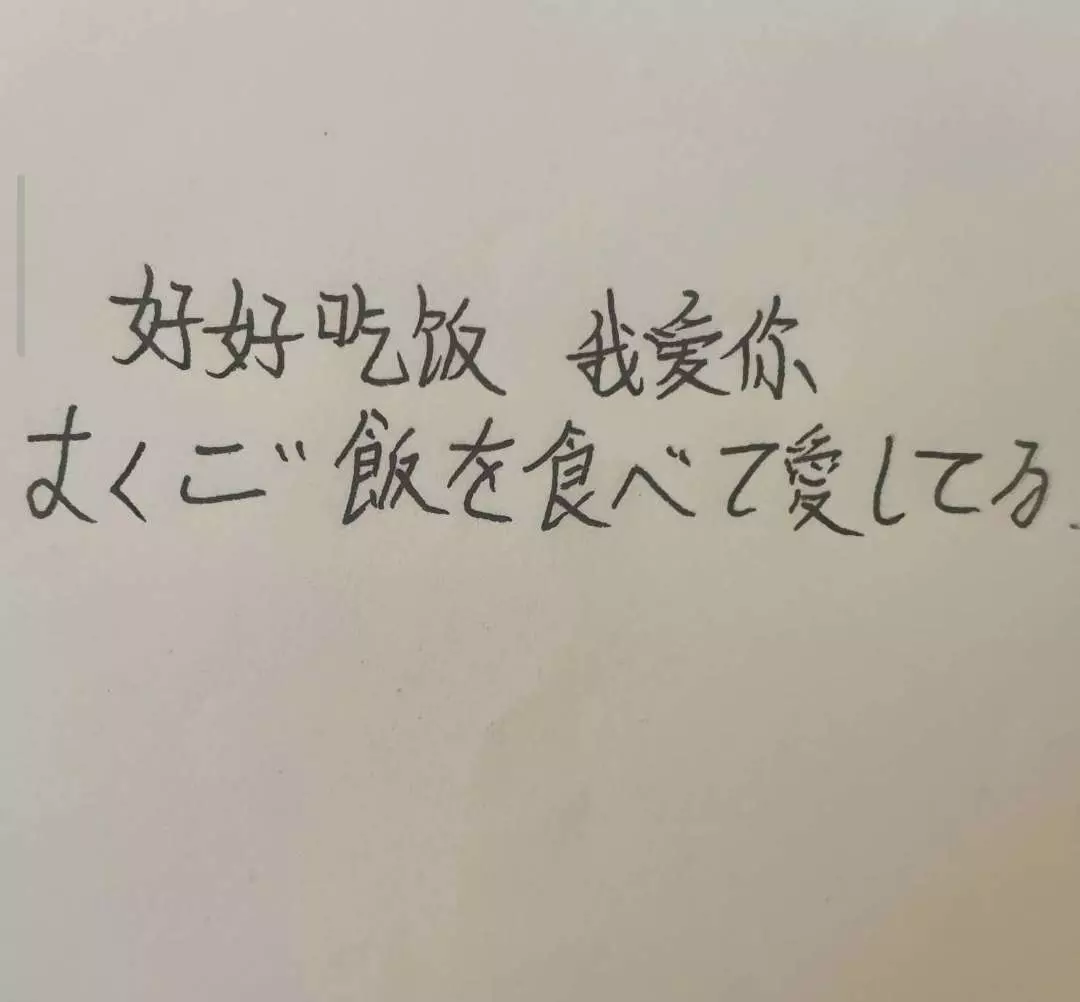 好好吃饭 我愛你
よくご飯を食べて愛してる